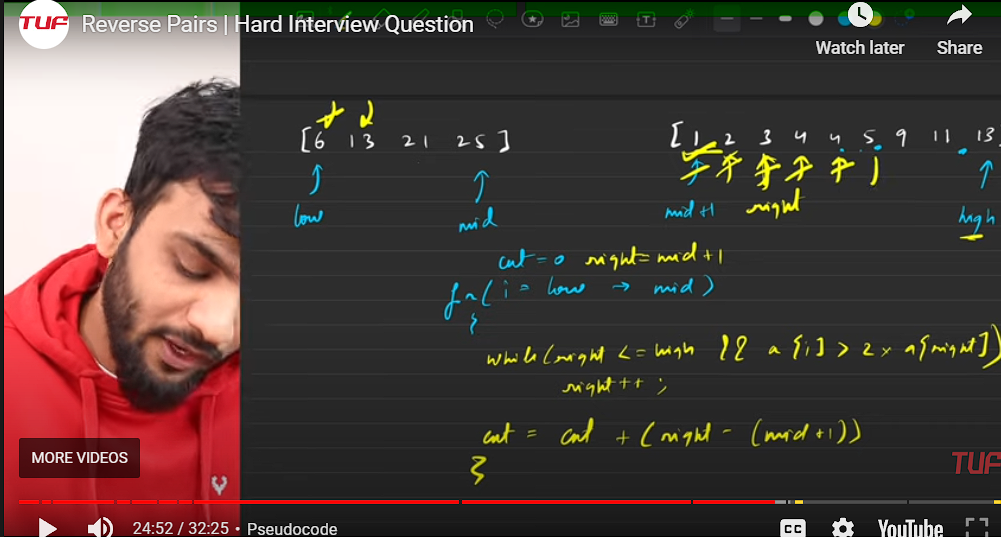 TUF Reverse Pairs | Hard Interview Question
Watch later Share
[6 13 21 25] [1 2 3 4 4 5 9 11 13
low mid mid+1 right high
cnt = 0 right = mid+1
for( i = low → mid)
{
while(right <= high && a[i] > 2 x a[right])
right++ ;
cnt = cnt + (right - (mid+1))
}
TUF
MORE VIDEOS
24:52 / 32:25 • Pseudocode CC YouTube